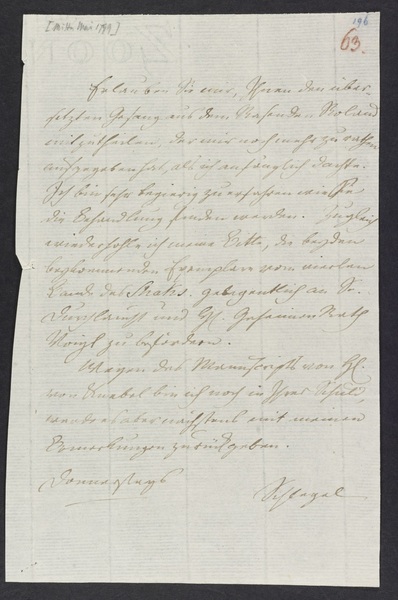 [Mitte Mai 1799]
196
63.
Erlauben Sie mir, Ihnen den über-
setzten Gesang aus dem Rasenden Roland
mitzutheilen, der mir noch mehr zu rathen
aufgegeben hat, als ich anfänglich dachte.
Ich bin sehr begierig zu erfahren wie Sie
die Behandlung finden werden. Zugleich
wiederhohle ich meine Bitte, die beyden
beykommenden Exemplare vom vierten
Bande des Shaksp. gelegentlich an Se.
Durchlaucht und H. Geheimen Rath
Voigt zu befördern.
Wegen des Manuscripts von H.
von Knebel bin ich noch in Ihrer Schuld,
werde es aber nächstens mit meinen
Bemerkungen zurückgeben.
Donnerstags
Schlegel